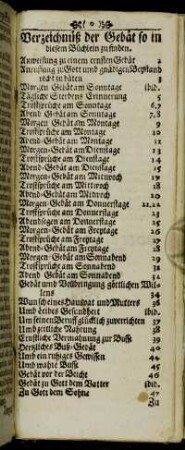 Verzeichnüß der Gebät so in
diesem Büchlein zufinden.
Anweisung zu einem ernsten Gebät 2
Anruffung zu Gott umb gnädigen Beystand
recht zu bäten 3
Morgen-Gebät am Sonntage ibid.
Tägliche Sterbens Erinnerung 5
Trostsprüche am Sonntage 6,7
Abend Gebät am Sonntage 7.8
Morgen Gebät am Montage 9
Trostsprüche am Montage 10
Abend-Gebät am Montage 11
Morgen-Gebät am Dienstage 13
Trostsprüche am Dienstage 14
Abend-Gebät am Dienstage 15
Morgen-Gebät am Mittwoch 17
Trostsprüche am Mittwoch 18
Abend-Gebät am Mittwoch 20
Morgen-Gebät am Donnerstage 21,22
Trostsprüche am Donnerstage 23
Abendsegen am Donnerstage 25
Morgen-Gebät am Freytage 26
Trostsprüche am Freytage 27
Abend-Gebät am Freytage 28
Morgen-Gebät am Sonnabend 29
Trostsprüche am Sonnabend 31
Abend-Gebät am Sonnabend 32
Gebät umb Vollbringung göttlichen Wil-
lens 34
Wunsch eines Hausvat und Mutters 36
Umb Leibes Gesundheit ibid.
Um seinen Beruff glücklich zuverrichten 37
Umb zeitliche Nahrung 38
Ernstliche Vermahnung zur Busse 39
Hertzliches Buß-Gebät 40
Umb ein ruhiges Gewissen 44
Umb wahre Busse 45
Gebät vor der Beicht 46
Gebät zu Gott dem Vatter ibid.
Zu Gott dem Sohne 47
Zu